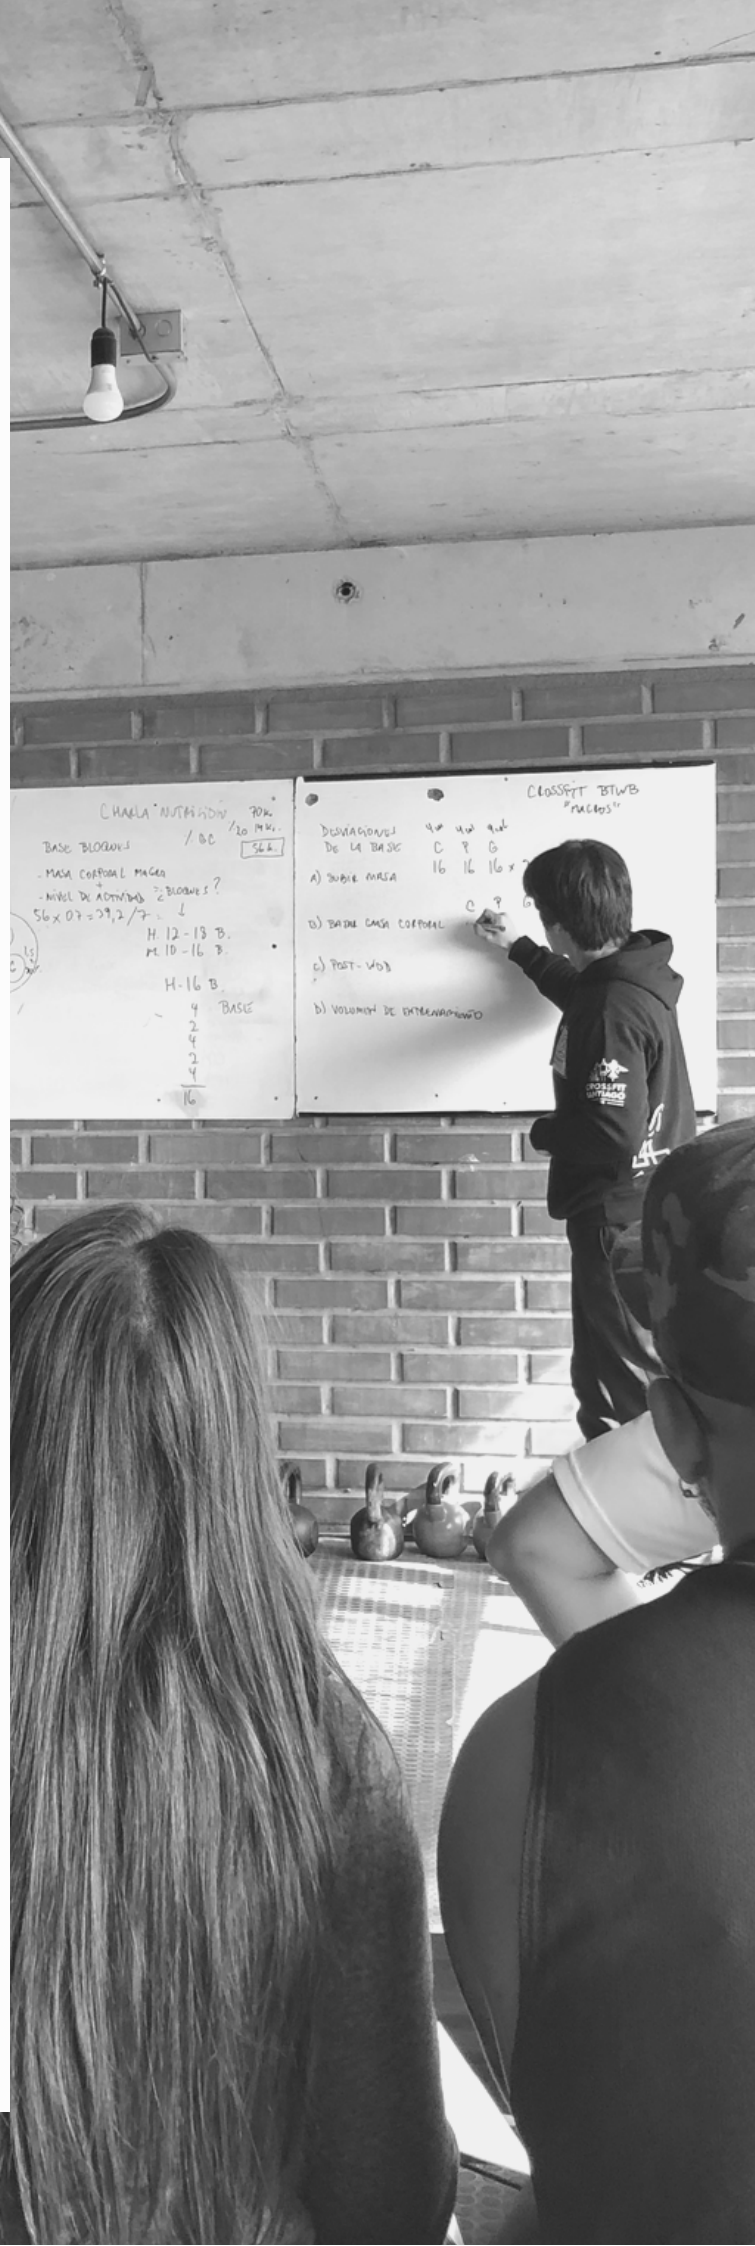 CHARLA "NUTRICIÓN"
70K.
14K.
56 K.
BASE BLOQUES
- MASA CORPORAL MAGRA
+
- NIVEL DE ACTIVIDAD
BLOQUES?
56 x 07 = 39,2 / 7 =
H 12-18 B.
M 10-16 B.
H-16 B.
4 BASE
2
4
2
4
16
CROSSFIT BTWB
"MACROS"
DESVIACIONES
DE LA BASE
C P G
16 16 16 x
A) SUBIR MASA
C P G
B) BAJAR GRASA CORPORAL
C) POST-WOD
D) VOLUMEN DE ENTRENAMIENTO
CROSSFIT
SANTIAGO